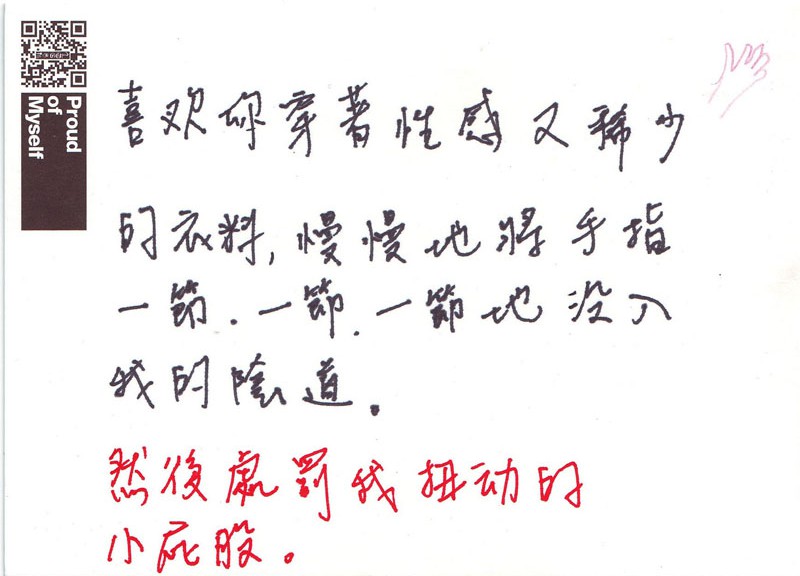 Proud
of
Myself
喜欢你穿著性感又稀少
的衣料,慢慢地將手指
一節.一節.一節地沒入
我的陰道。
然後處罰我扭动的
小屁股。